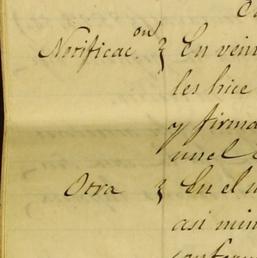 Notificac.on } En vein
les hice
y firma
Otra } En el
asi mi